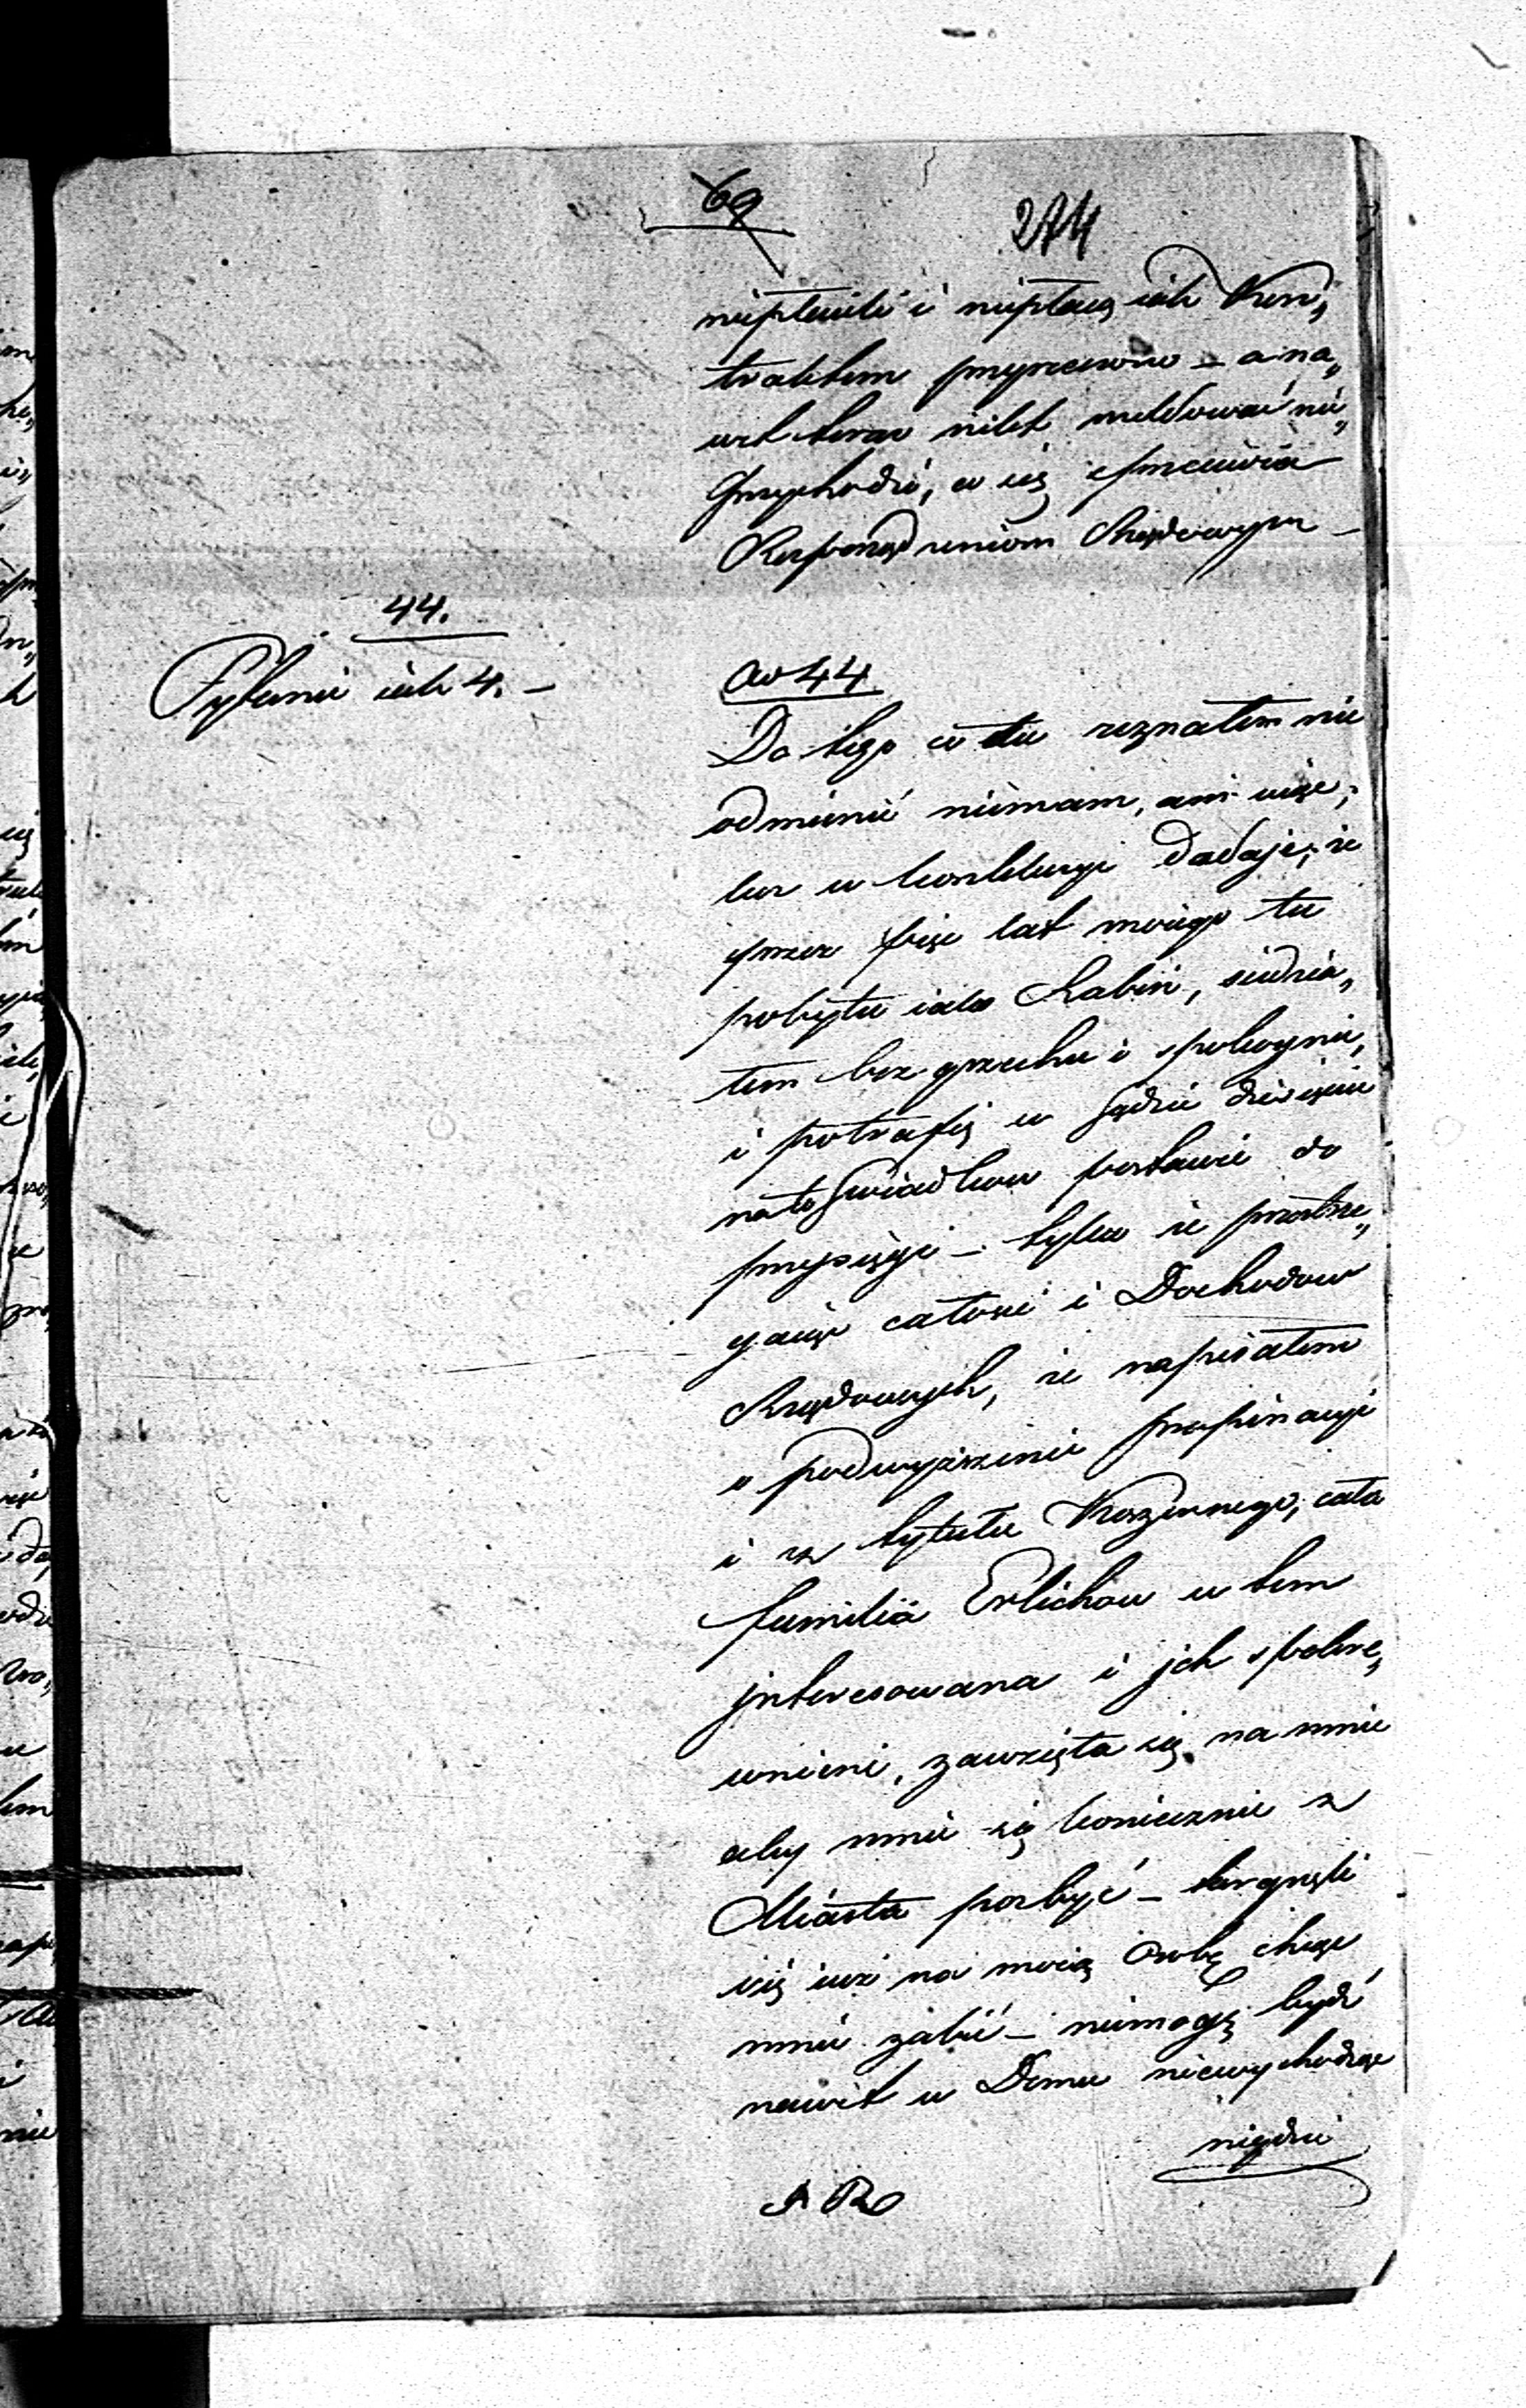 69
274
niepłacili i niepłacą iak Kon„
traktem przyrzeczono – a na„
wet teraz nikt meldować nie„
przychodzi, a się sprzeciwia
Rozporządzeniom Rządowym –
44.
Pytanie iak 4. –
ad 44
Do tego co tu zeznałem nie
odmienić niemam, ani więc,
lecz w konkluzyi dodaję, że
przez pięć lat moiego tu
pobytu iako Rabin, siedzia„
łem bez grzechu i spokoynie,
i potrafię w Sądzie dziesięcie
na to Swiadkow postawić do
przysięgi – tylko że przestrze„
gaiąc całości i Dochodow
Rządowych, że napisałem
o podwyższenie propinacyi
i z tytułu Koszernego, cała
familia Erlichow w tem
jnteresowana i jch spokre„
wnieni, zawzięła się na mnie
aby mnie się koniecznie z
Miasta pozbyć – targnęli
się iuż na moią Osobę chcąc
mnie zabić – niemogę bydź
nawet w Domu niewychodząc
nigdzie
A R